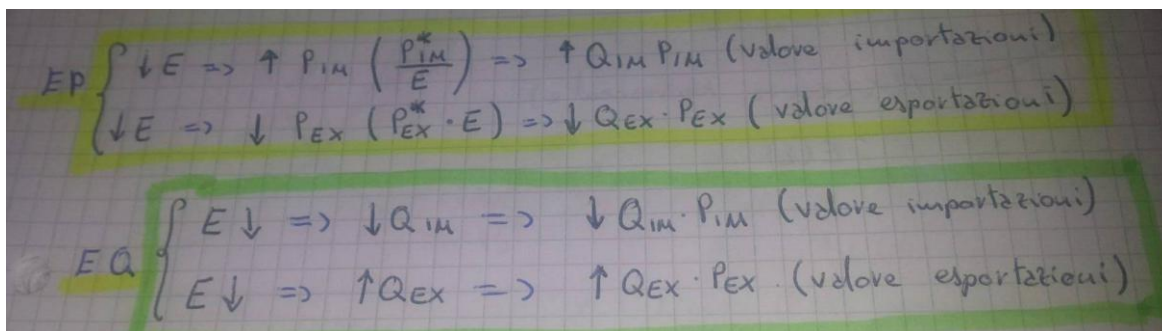 EP { ↓ E => ↑ P_IM ( P*_IM / E ) => ↑ Q_IM P_IM (valore importazioni)
↓ E => ↓ P_EX ( P*_EX · E ) => ↓ Q_EX · P_EX ( valore esportazioni)
EQ { E ↓ => ↓ Q_IM => ↓ Q_IM · P_IM (valore importazioni)
E ↓ => ↑ Q_EX => ↑ Q_EX · P_EX . (valore esportazioni)